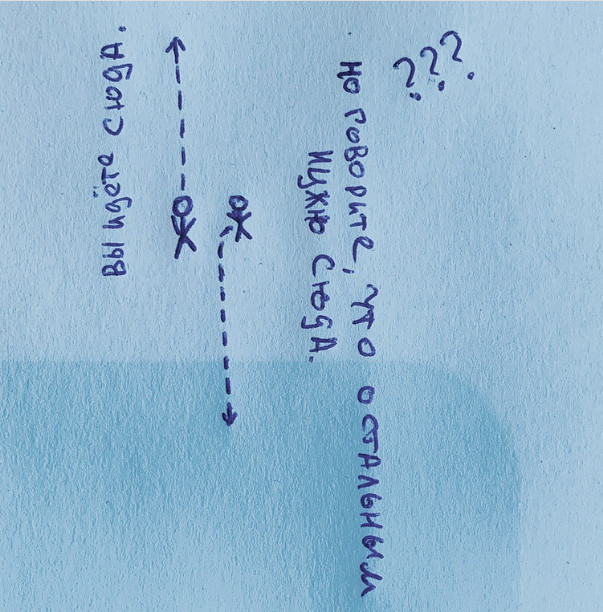 Вы идёте сюда.
но говорите, что остальным
нужно сюда.
???